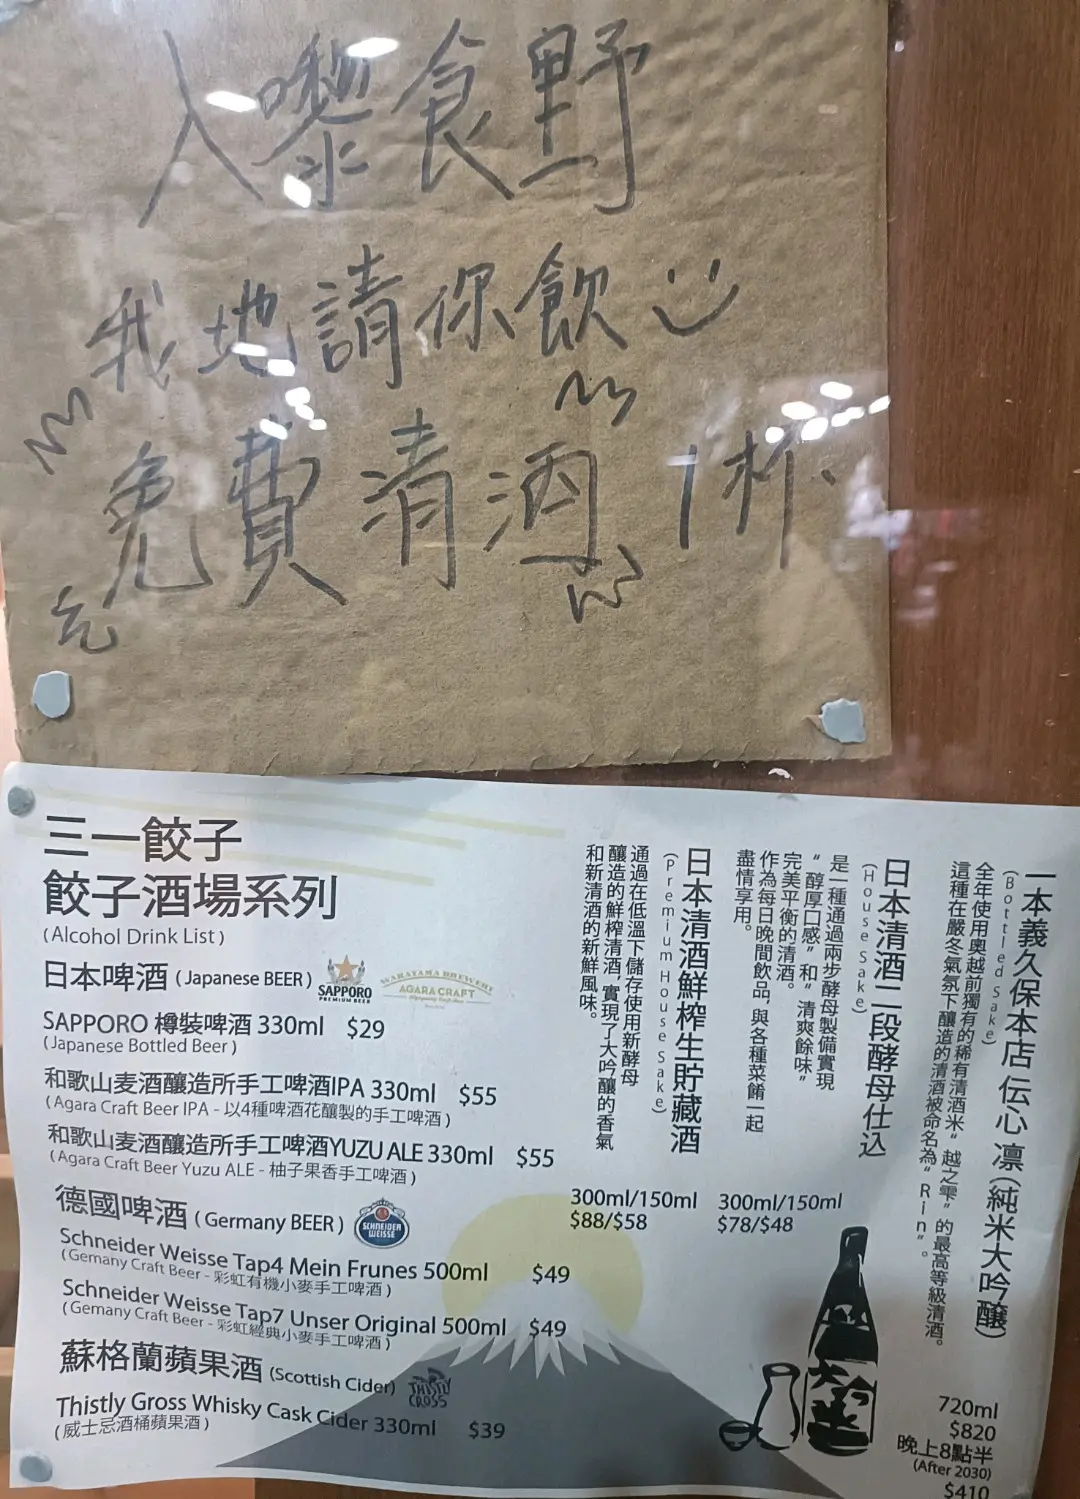 入嚟食野
我地請你飲
免費清酒 1杯
三一餃子
餃子酒場系列
(Alcohol Drink List)
日本啤酒 (Japanese BEER)
SAPPORO
PREMIUM BEER
WAKAYAMA BREWERY
AGARA CRAFT
SAPPORO 樽裝啤酒 330ml $29
(Japanese Bottled Beer)
和歌山麦酒釀造所手工啤酒IPA 330ml $55
(Agara Craft Beer IPA - 以4種啤酒花釀製的手工啤酒)
和歌山麦酒釀造所手工啤酒YUZU ALE 330ml $55
(Agara Craft Beer Yuzu ALE - 柚子果香手工啤酒)
德國啤酒 (Germany BEER)
SCHNEIDER
WEISSE
Schneider Weisse Tap4 Mein Frunes 500ml $49
(Gemany Craft Beer - 彩虹有機小麥手工啤酒)
Schneider Weisse Tap7 Unser Original 500ml $49
(Gemany Craft Beer - 彩虹經典小麥手工啤酒)
蘇格蘭蘋果酒 (Scottish Cider)
THISTLY
CROSS
Thistly Gross Whisky Cask Cider 330ml $39
(威士忌酒桶蘋果酒)
一本義久保本店 伝心 凛(純米大吟醸)
(Bottled Sake)
全年使用奧越前獨有的稀有清酒米“越之雫”的最高等級清酒。
這種在嚴冬氣氛下釀造的清酒被命名為“Rin”。
720ml
$820
晚上8點半
(After 2030)
$410
日本清酒二段酵母仕込
(House Sake)
是一種通過兩步酵母製備實現
“醇厚口感”和“清爽餘味”
完美平衡的清酒。
作為每日晚間飲品,與各種菜餚一起
盡情享用。
300ml/150ml
$78/$48
日本清酒鮮榨生貯藏酒
(Premium House Sake)
通過在低溫下儲存使用新酵母
釀造的鮮榨清酒,實現了大吟釀的香氣
和新清酒的新鮮風味。
300ml/150ml
$88/$58